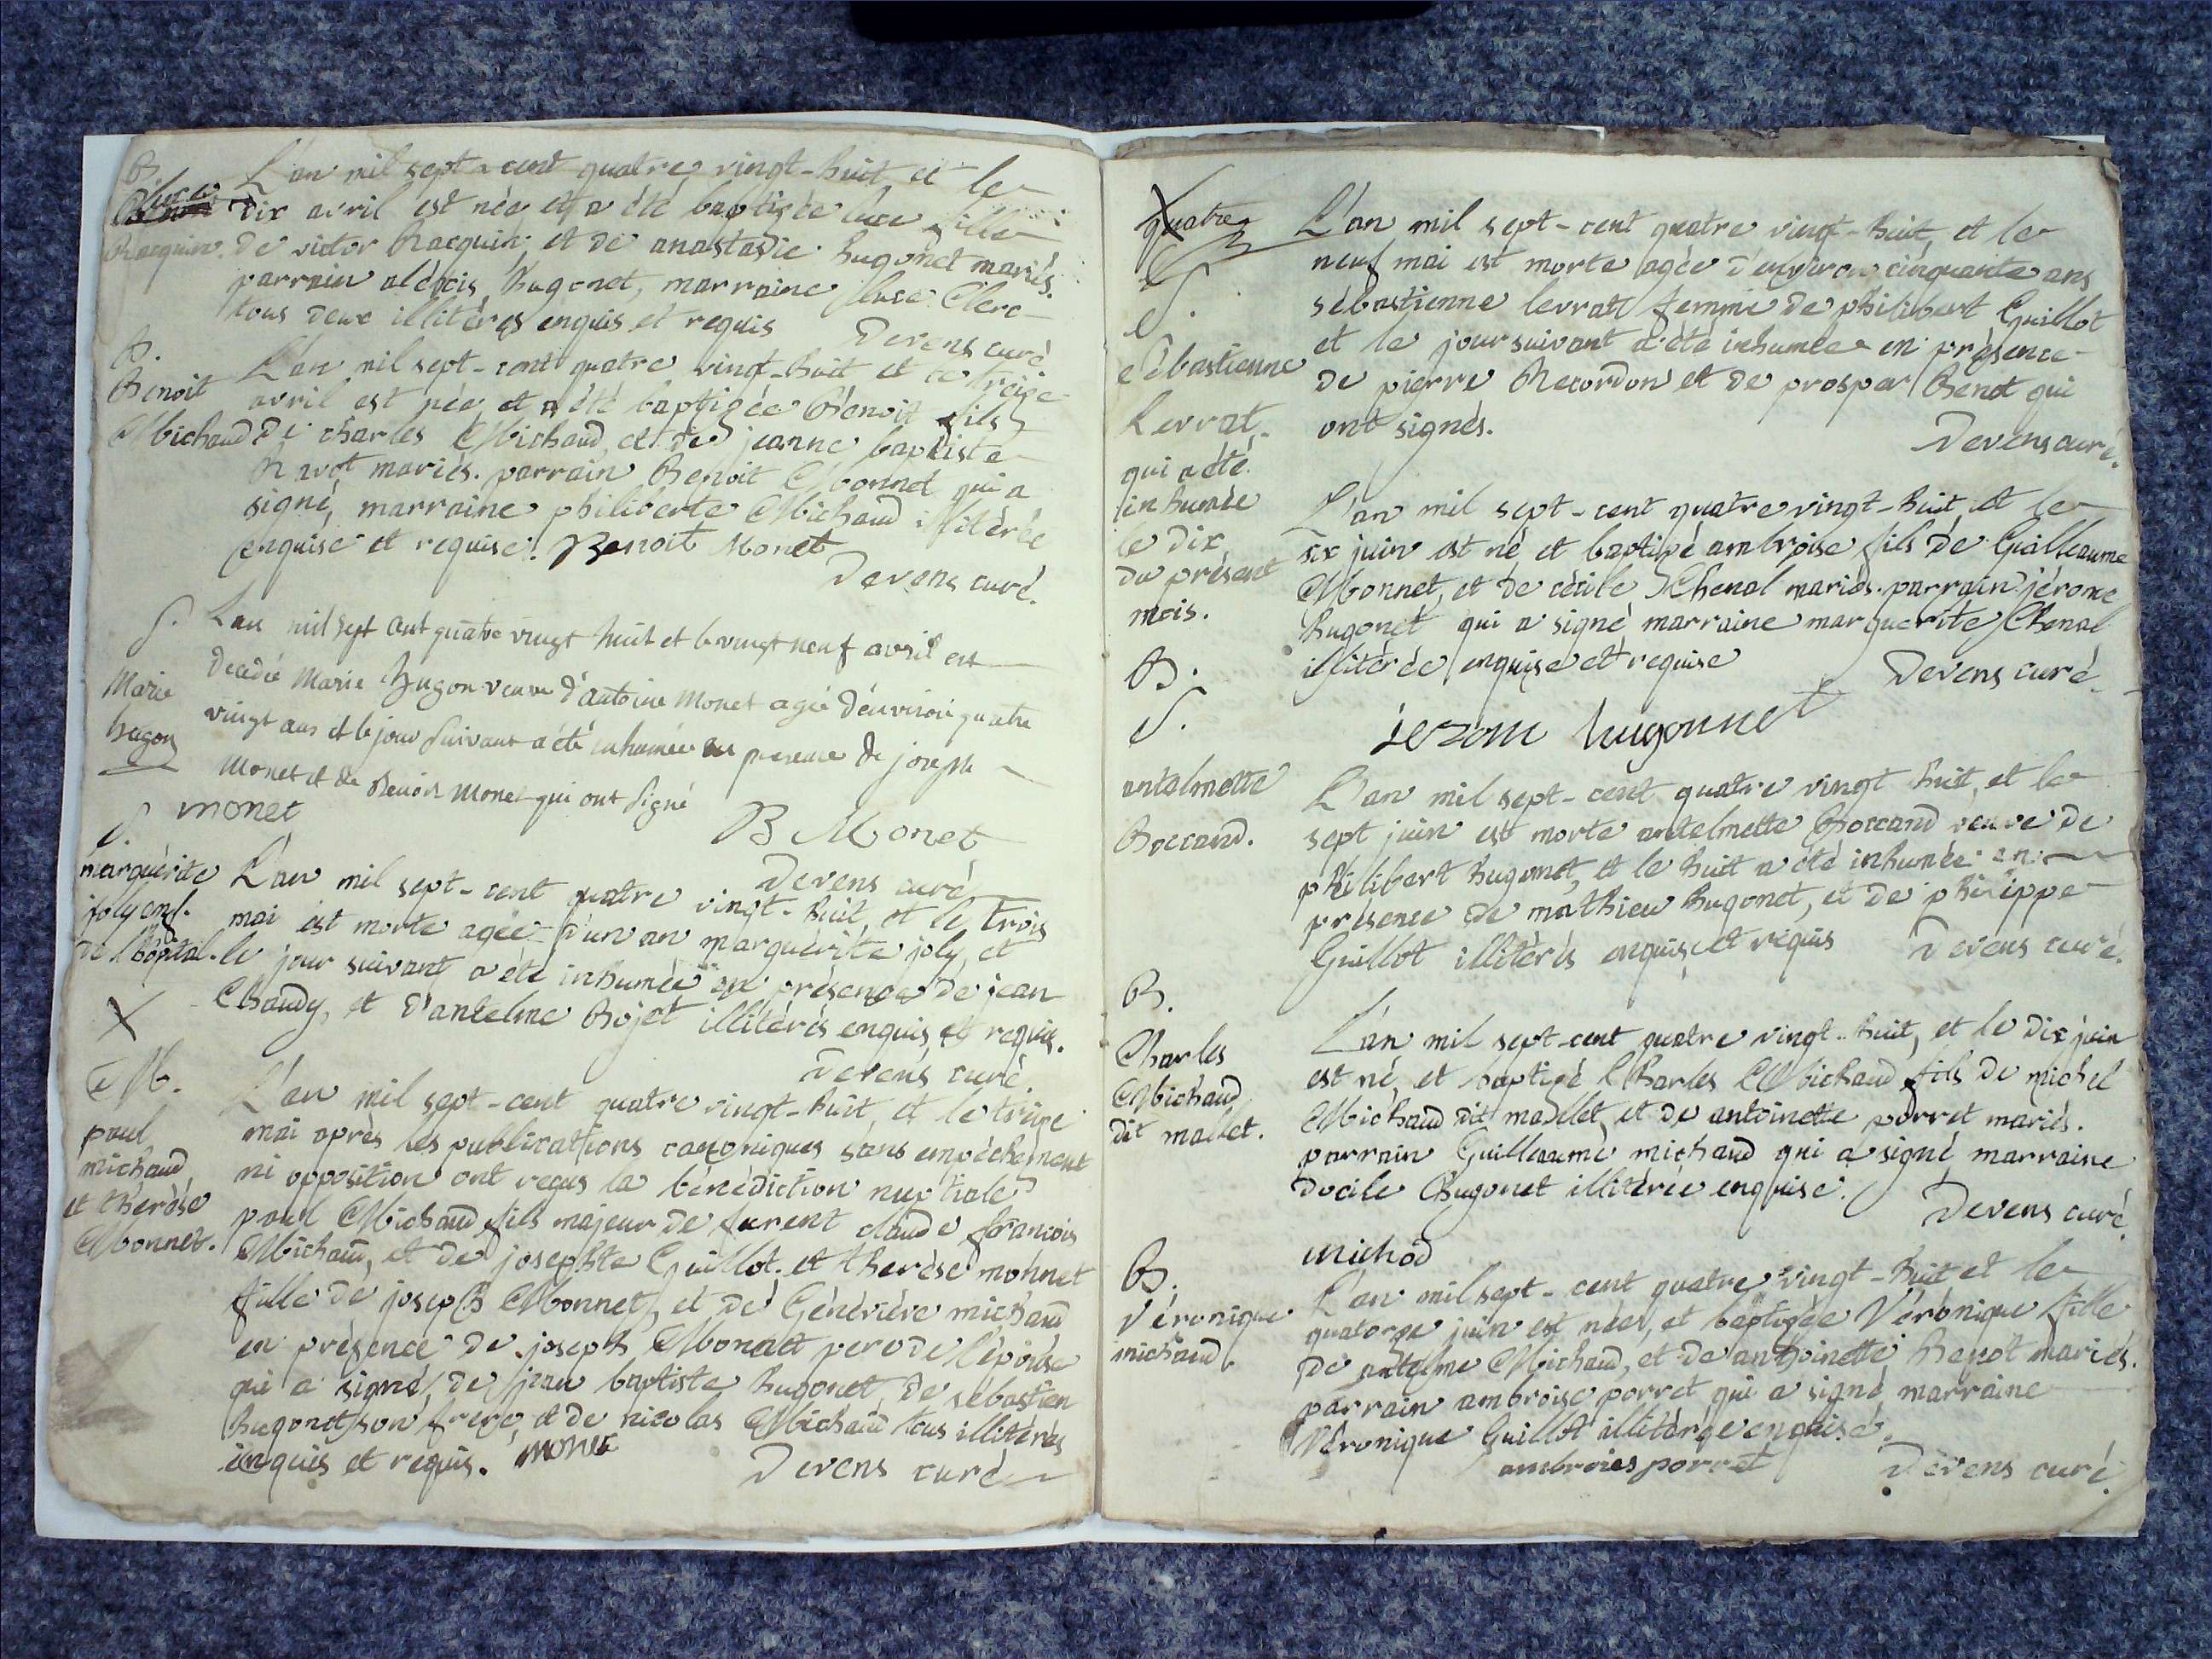 B.
luce
Racquin.
L'an mil sept-cent quatre vingt-huit et le
dix avril est née et a été baptisée luce fille
de victor Racquin, et de anastasie hugonet mariés.
parrain aléxis hugonet, marraine luse Clerc
tous deux illitérés enquis et requis
Devens curé
B.
Benoit
Michaud
L'an mil sept-cent quatre vingt-huit et le treize
avril est née et a été baptisée Bénoit fils
de charles Michaud, et de jeanne baptiste
Ravot mariés. parrain Benoit Monnet qui a
signé, marraine philiberte Michaud illitérée
enquise et requise. Benoit Monet
Devens curé.
S.
Marie
hugon
Lan mil sept cent quatre vingt huit et le vingt neuf avril est
decedée Marie hugon veuve d'antoine Monet agée d'environ quatre
vingt ans et le jour suivant a été inhumée en presence de joseph
Monet et de Benoit Monet qui ont signé
monet
B Monet
Devens curé
S.
marguérite
joly enf.
de l'hôpital.
X
L'an mil sept-cent quatre vingt-huit, et le trois
mai est morte agée d'un an marguérite joly, et
le jour suivant a été inhumée en présence de jean
Chaudy, et d'antelme Bojot illitérés enquis, et requis.
Devens curé.
M.
paul
michaud
et therèse
Monnet.
L'an mil sept-cent quatre vingt-huit, et le treize
mai après les publications canoniques sans empêchement
ni opposition ont reçus la bénédiction nuptiale
paul Michaud fils majeur de furent claude françois
Michaud, et de josephte Guillot. et therèse mohnet
fille de joseph Monnet, et de Généviéve michaud
en présence de joseph Monett pere de l'épouse
qui a signé, de jean baptiste hugonet, de sébastien
hugonet son frere, et de nicolas Michaud tous illitérés
enquis et requis. monet
Devens curé
quatre
S.
sébastienne
Levrat.
qui a été
inhumée
le dix
du présent
mois.
L'an mil sept-cent quatre vingt-huit, et le
neuf mai est morte agée d'environ cinquante ans
sébastienne levratt femme de philibert Guillot
et le jour suivant a été inhumée en présence
de pierre Recordon et de prosper Benet qui
ont signés.
Devens curé.
B.
L'an mil sept-cent quatre vingt-huit, et le
six juin est né et baptisé ambroise fils de Guilleaume
Monnet, et de cécile Chenal mariés. parrain jérome
hugonet qui a signé marraine marguerite Chenal
illitérée enquise et requise
Devens curé
jerom hugonnet
S.
antalmette
Boccand.
L'an mil sept-cent quatre vingt huit, et le
sept juin est morte antelmette Boccand veuve de
philibert hugonet, et le huit a été inhumée en
présence de mathieu hugonet, et de philippe
Guillot illitérés enquis et requis
Devens curé.
B.
Charles
Michaud
dit mallet.
L'an mil sept-cent quatre vingt-huit, et le dix juin
est né, et baptisé Charles Michaud fils de michel
Michaud dit mallet, et de antoinette porret mariés.
parrain Guilleaume michaud qui a signé marraine
docile hugonet illitérée enquise.
Devens curé
michod
B.
Véronique
michaud.
L'an mil sept-cent quatre vingt-huit et le
quatorze juin est née, et baptisée Véronique fille
de antelme Michaud, et de anthoinette Benot mariés.
parrain ambroise porret qui a signé marraine
Véronique Guillot illitérée enquise.
ambroies porret
Devens curé.